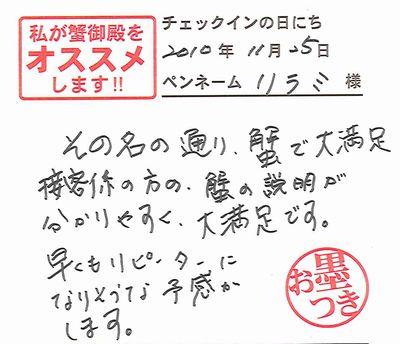 私が蟹御殿を
オススメ
します!!
チェックインの日にち
2010年 11月 25日
ペンネーム リラミ 様
その名の通り、蟹で大満足
接客係の方の、蟹の説明が
分かりやすく、大満足です。
早くもリピーターに
なりそうな予感が
します。
お墨
つき